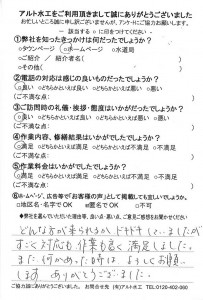 アルト水工をご利用頂きまして誠にありがとうございました
お忙しいところ誠に申し訳ございませんが、アンケートにご協力お願いします。
― 該当する○に印をつけてください ―
①弊社を知ったきっかけは何だったでしょうか？
○タウンページ ○ホームページ ○水道局
○ご紹介 / 紹介者名( )
○その他( )
②電話の対応は感じの良いものだったでしょうか？
○満足 ○どちらかといえば満足 ○どちらかといえば悪い ○悪い
ご不満な点( )
③ご訪問時の礼儀・挨拶・態度はいかがだったでしょうか？
○満足 ○どちらかといえば満足 ○どちらかといえば悪い ○悪い
ご不満な点( )
④作業内容、修繕結果はいかがでしたでしょうか？
○満足 ○どちらかといえば満足 ○どちらかといえば不満 ○不満
ご不満な点:( )
⑤作業料金はいかがでしたでしょうか？
○満足 ○どちらかといえば満足 ○どちらかといえば不満 ○不満
ご不満な点( )
⑥ホームページ、広告等で「お客様の声」として掲載しても宜しいでしょうか？
○地区名・名字でOK ○匿名でOK ○不可
◆弊社を選んでいただいた理由等、良い点・悪い点、ご意見ご感想をお聞かせください
どんな方が来られるか ドキドキしていましたが
すごく対応も作業も良く満足しました。
また何かあった時は よろしくお願い
します ありがとうございました
ご協力誠にありがとうございました。 お問合わせ先 (有)アルト水工 TEL0120-402-080